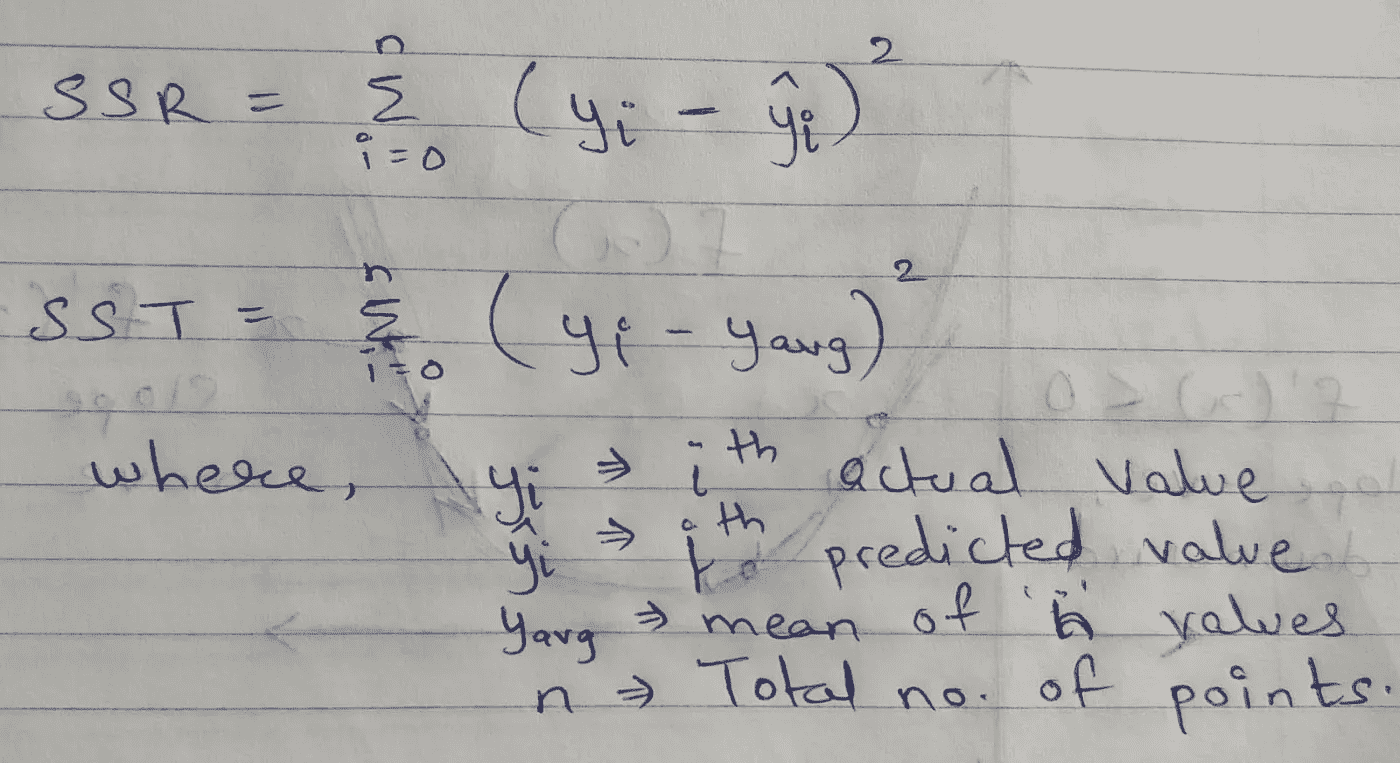 SSR = Σ (yᵢ - ŷᵢ)² n i=0
SST = Σ (yᵢ - yavg)² n i=0
where, yᵢ ⇒ iᵗʰ actual value
ŷᵢ ⇒ iᵗʰ predicted value
yavg ⇒ mean of 'n' values
n ⇒ Total no. of points.